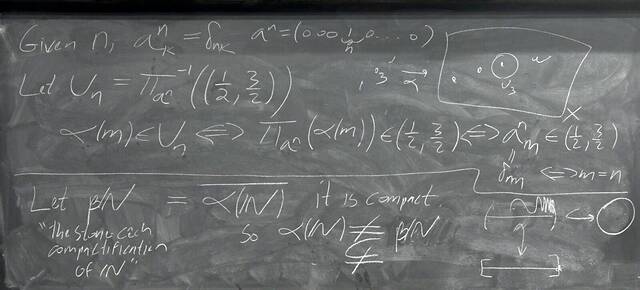 Given n, aⁿₖ = δₙₖ aⁿ = (0 0 0 1 0 ... 0)
n
Let Uₙ = π_{aⁿ}⁻¹((1/2, 3/2))
α
U₃
X
α(m) ∈ Uₙ ⟺ π_{aⁿ}(α(m)) ∈ (1/2, 3/2) ⟺ aⁿₘ ∈ (1/2, 3/2)
δₙₘ ⟺ m = n
Let βℕ = \overline{α(ℕ)} it is compact
"The Stone Čech compactification of ℕ"
so α(ℕ) ≠ βℕ
≠